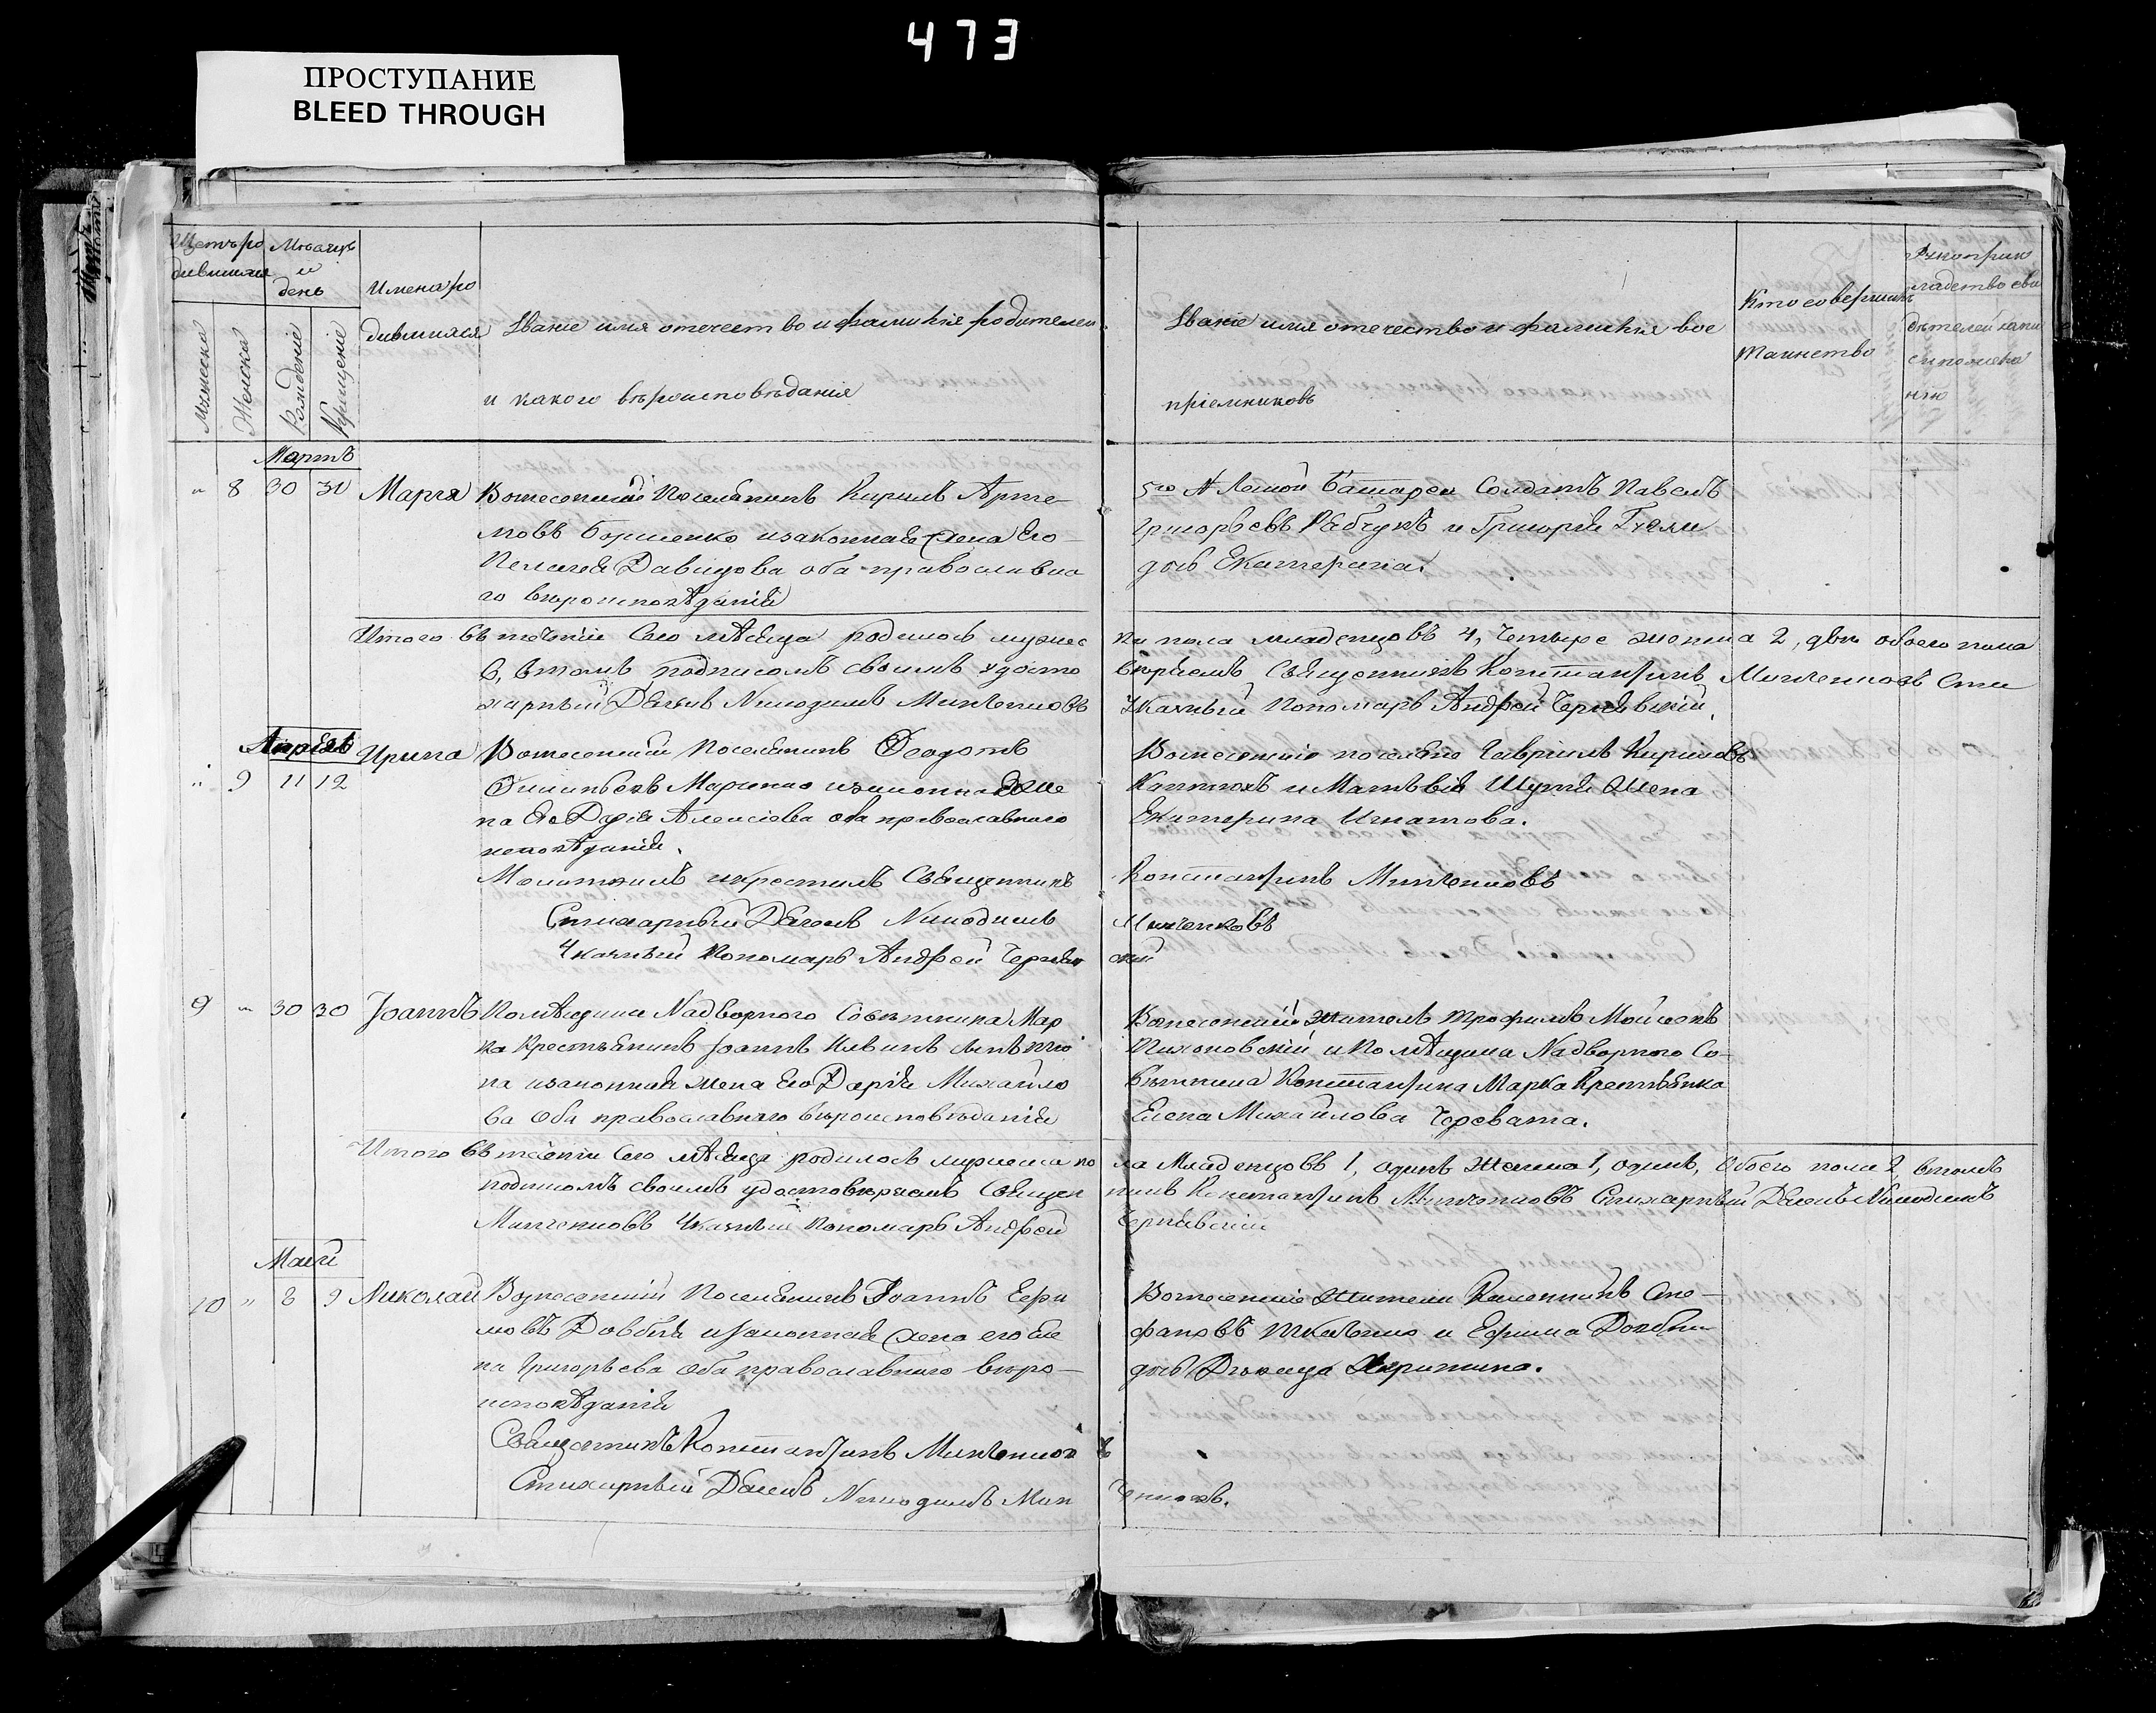 473
ПРОСТУПАНИЕ
BLEED THROUGH
Щетъ ро
дившихся
Мѣсяцъ
и
день
Имена ро
дившихся
Мужеска
Женска
Рожденіе
Крещеніе
Званіе имя отечество и фамилія родителей
и какого вѣроисповѣданія
Званіе имя отечество и фамилія вос
пріемниковъ
Кто совершилъ
таинство
Рукоприк
ладство сви
дѣтелей запи
си по жела
нію
Мартъ
" 8 30 31 Марія Вознесенскій Поселянинъ Кирилъ Арте
мовъ Борисенко и законная жена Его
Пелагея Давидова оба православна
го вѣроисповѣданія
5го Легкой Батареи Солдатъ Павелъ
Григорьевъ Рябчукъ и Григорія
дочь Екатерина.
Итого въ теченіи Сего мѣсяца родилось мужес
ка пола младенцовъ 4, четыре женска 2, двѣ обоего пола
6, втомъ подписомъ своимъ удосто
вѣряемъ Священникъ Константинъ Минченковъ Сти
харный Дьячокъ Никодимъ Минченковъ
Указный Пономарь Андрей Чернявскій.
Апрѣль
" 9 11 12 Ирина Вознесенскій Поселянинъ Феодотъ
Филиповъ Марченко и законная же
на Его Дарія Алексіева оба православнаго
исповѣданія.
Вознесенскіе поселяне Гавріилъ Кириловъ
и Матѣвія жена
Екатерина Игнатова.
Молитвилъ и крестилъ Священникъ
Константинъ Минченковъ
Стихарный Дьячокъ Никодимъ
Минченковъ
Указный Пономарь Андрей Черняв
скій
9 " 30 30 Іоаннъ Помѣщика Надворного Совѣтника Мар
ка Крестьянинъ Іоаннъ
на и законная жена Его Дарія Михайло
ва Оба православнаго вѣроисповѣданія
Вознесенскій житель Трофимъ Мойсеевъ
и Помѣщика Надворного Со-
вѣтника Константина Марка Крестьянка
Елена Михайлова Черевата.
Итого въ теченіи Сего мѣсяца родилось мужеска по
ла Младенцовъ 1, одинъ женска 1, одинъ, Обоего пола 2, втомъ
подписомъ своимъ удостовѣряемъ Священ
никъ Константинъ Минченковъ Стихарный Дьячокъ Никодимъ
Минченковъ Указный Пономарь Андрей
Чернявскій
Маій
10 " 8 9 Николай Вознесенскій Поселянинъ Іоаннъ
мовъ Довбня и законная жена его Еле
на Григорьева оба православнаго вѣро-
исповѣданія
Вознесенскіе жители Сте-
фановъ и Ефима Довбни
дочь Дѣвица
Священникъ Константинъ Минченков
ъ
Стихарный Дьячокъ Никодимъ Мин
ченковъ.